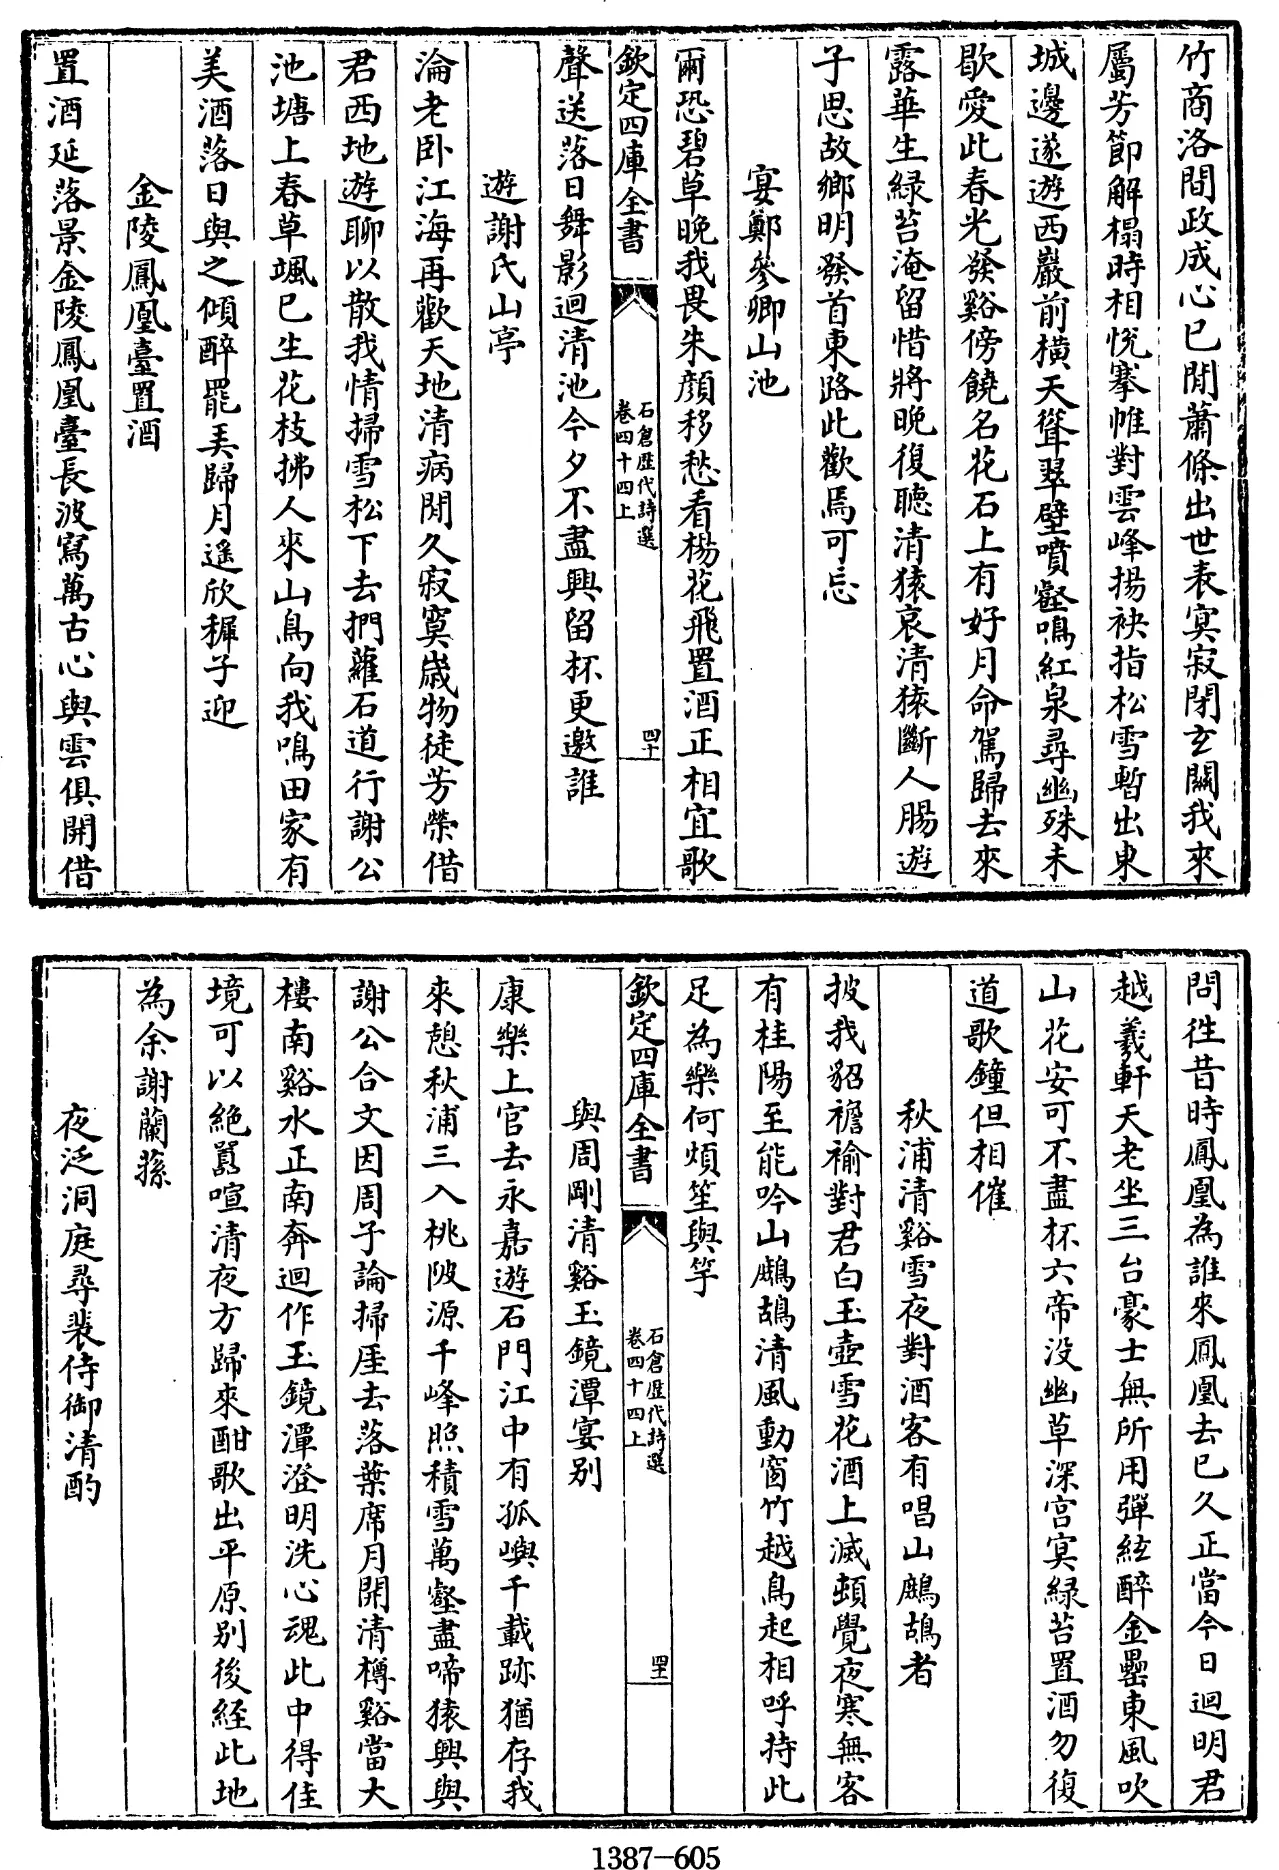 竹商洛間政成心已閒蕭條出世表冥寂閉玄關我來
屬芳節解榻時相悅搴帷對雲峰揚袂指松雪暫出東
城邊遂遊西巖前橫天聳翠壁噴壑鳴紅泉尋幽殊未
歇愛此春光發谿傍饒名花石上有好月命駕歸去來
露華生綠苔淹留惜將晚復聽清猿哀清猿斷人腸遊
子思故鄉明發首東路此歡焉可忘
宴鄭參卿山池
爾恐碧草晚我畏朱顏移愁看楊花飛置酒正相宜歌
欽定四庫全書
石倉歷代詩選
卷四十四上
四十
聲送落日舞影迴清池今夕不盡興留杯更邀誰
遊謝氏山亭
淪老卧江海再歡天地清病閒久寂寞歲物徒芳榮借
君西地遊聊以散我情掃雪松下去捫蘿石道行謝公
池塘上春草颯已生花枝拂人來山鳥向我鳴田家有
美酒落日與之傾醉罷弄歸月遥欣稚子迎
金陵鳳凰臺置酒
置酒延落景金陵鳳凰臺長波寫萬古心與雲俱開借
問徃昔時鳳凰為誰來鳳凰去已久正當今日迴明君
越羲軒天老坐三台豪士無所用彈絃醉金罍東風吹
山花安可不盡杯六帝没幽草深宫冥綠苔置酒勿復
道歌鐘但相催
秋浦清谿雪夜對酒客有唱山鷓鴣者
披我貂襜褕對君白玉壺雪花酒上滅頓覺夜寒無客
有桂陽至能吟山鷓鴣清風動窗竹越鳥起相呼持此
足為樂何煩笙與竽
欽定四庫全書
石倉歷代詩選
卷四十四上
四十一
與周剛清谿玉鏡潭宴别
康樂上官去永嘉遊石門江中有孤嶼千載跡猶存我
來憩秋浦三入桃陂源千峰照積雪萬壑盡啼猿興與
謝公合文因周子論掃厓去落葉席月開清樽谿當大
樓南谿水正南奔迴作玉鏡潭澄明洗心魂此中得佳
境可以絶囂喧清夜方歸來酣歌出平原别後經此地
為余謝蘭蓀
夜泛洞庭尋裴侍御清酌
1387-605